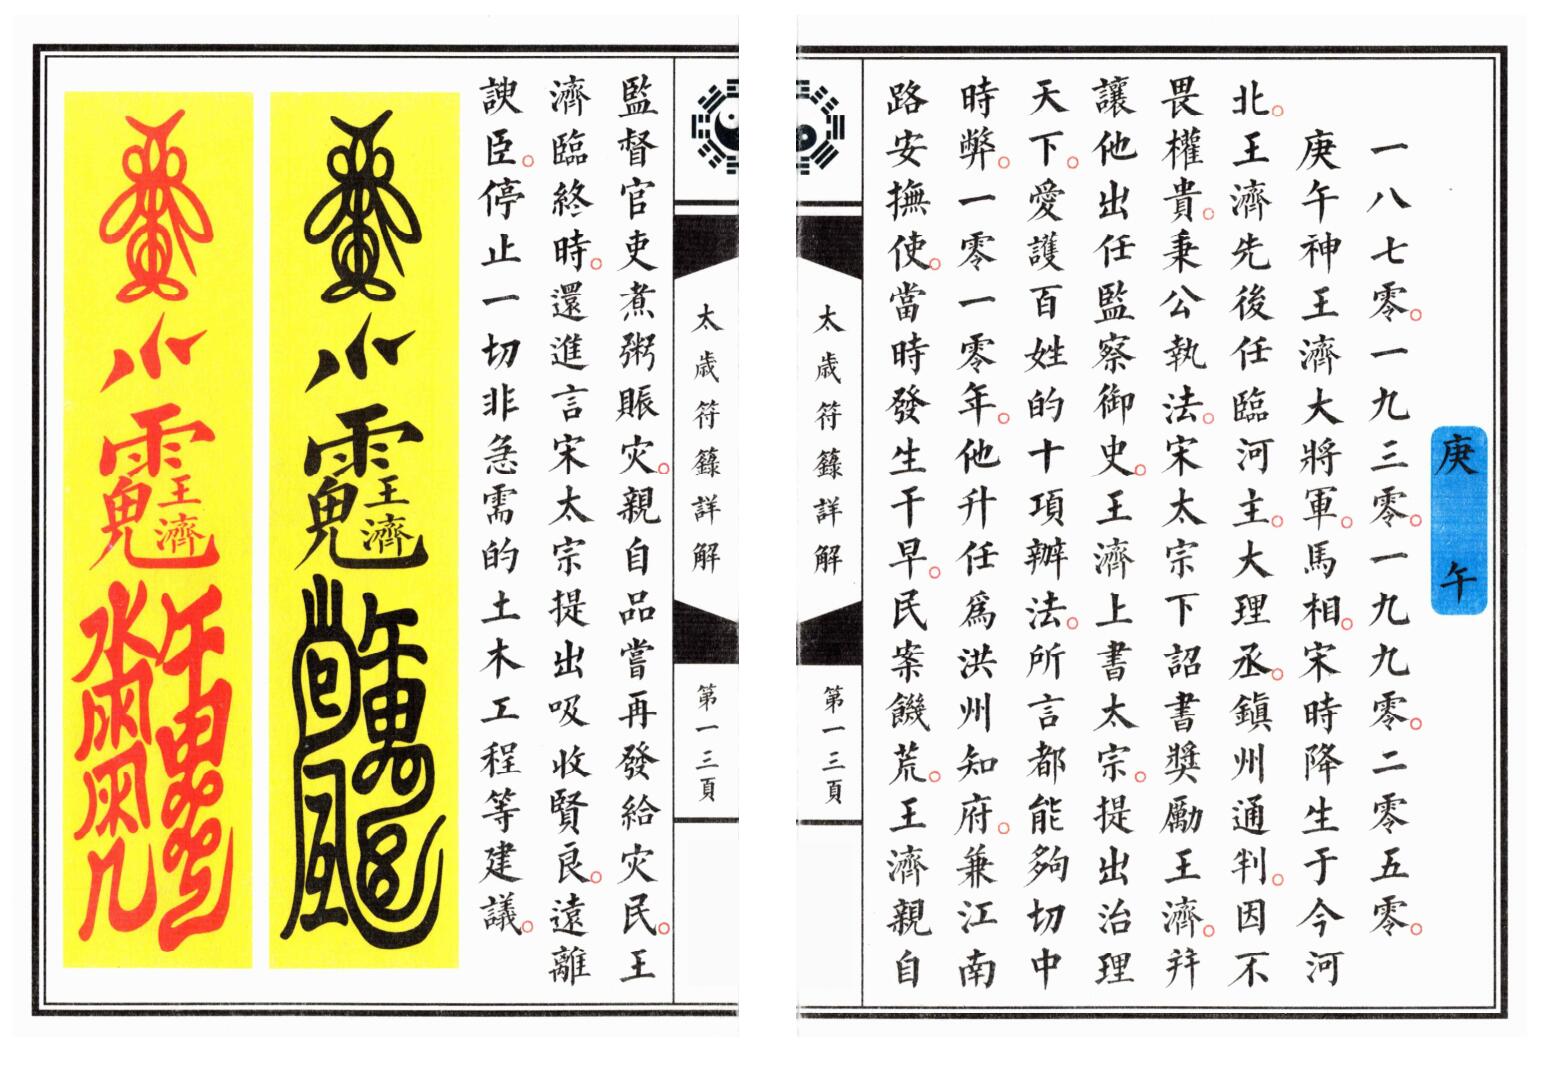 庚午
一八七零。一九三零。一九九零。二零五零。
庚午神王濟大將軍。馬相。宋時降生于今河
北。王濟先後任臨河主。大理丞。鎮州通判。因不
畏權貴。秉公執法。宋太宗下詔書獎勵王濟。并
讓他出任監察御史。王濟上書太宗。提出治理
天下。愛護百姓的十項辦法。所言都能夠切中
時弊。一零一零年。他升任爲洪州知府。兼江南
路安撫使。當時發生干旱。民案饑荒。王濟親自
太歲符籙詳解
第一三頁
太歲符籙詳解
第一三頁
監督官吏煮粥賬灾。親自品嘗再發給灾民。王
濟臨終時。還進言宋太宗提出吸收賢良。遠離
諛臣。停止一切非急需的土木工程等建議。
小
王濟
小
王濟